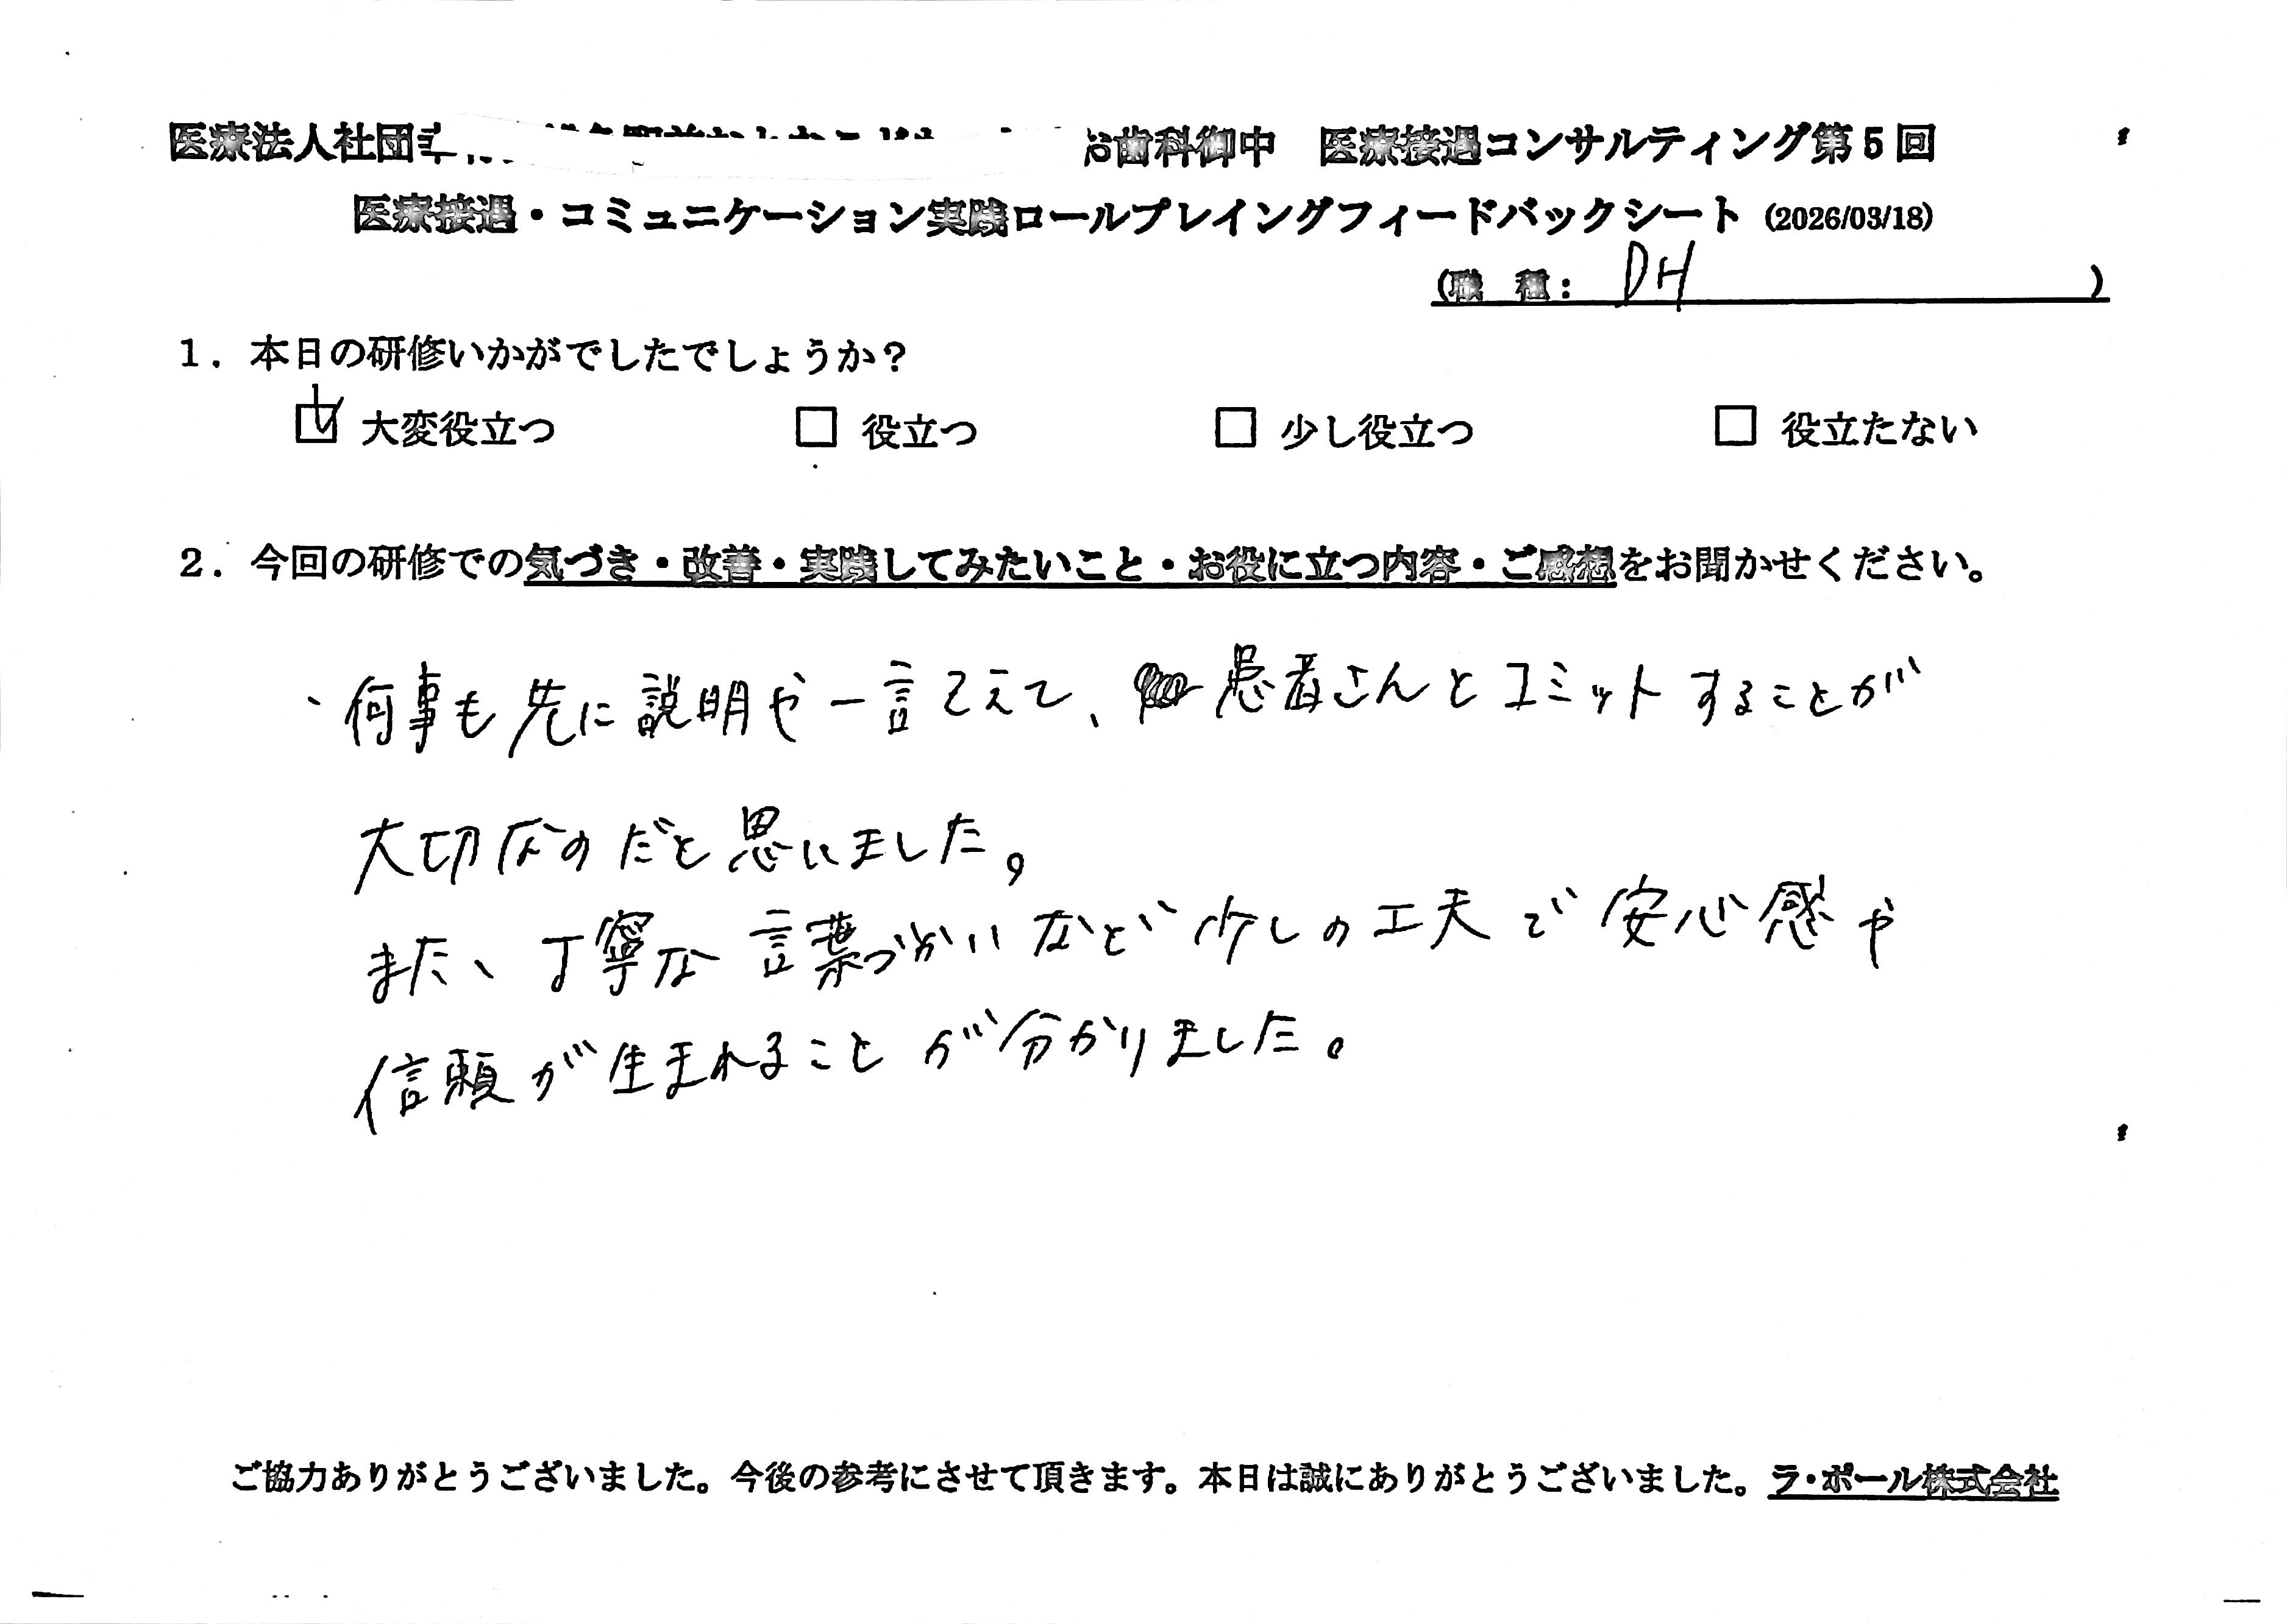 医療法人社団 お歯科御中 医療接遇コンサルティング第5回
医療接遇・コミュニケーション実践ロールプレイングフィードバックシート (2026/03/18)
(職 種: DH )
1. 本日の研修いかがでしたでしょうか?
☑ 大変役立つ □ 役立つ □ 少し役立つ □ 役立たない
2. 今回の研修での気づき・改善・実践してみたいこと・お役に立つ内容・ご感想をお聞かせください。
、何事も先に説明や一言そえて、患者さんとコミットすることが
大切なのだと思いました。
また、丁寧な言葉づかいなど少しの工夫で安心感や
信頼が生まれることが分かりました。
ご協力ありがとうございました。今後の参考にさせて頂きます。本日は誠にありがとうございました。ラ・ポール株式会社